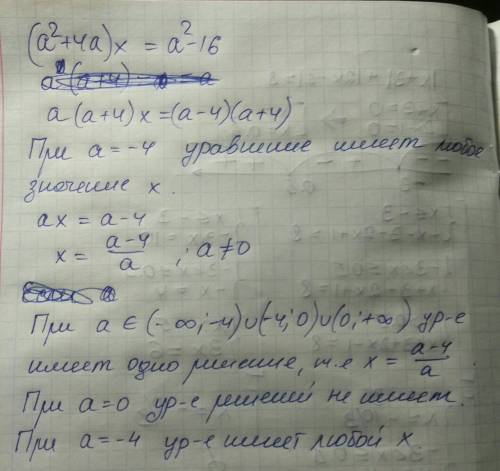 (a²+4a)x = a²-16
a(a+4)x=(a-4)(a+4)
При a=-4 уравнение имеет любое
значение x.
ax = a-4
x = (a-4)/a ; a≠0
При a ∈ (-∞;-4)∪(-4;0)∪(0;+∞) ур-е
имеет одно решение, т.е x = (a-4)/a.
При a=0 ур-е решений не имеет.
При a=-4 ур-е имеет любой x.